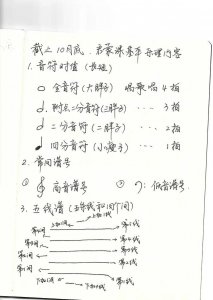 截止10月底,启蒙课基本乐理内容
1.音符时值(长短)
全音符(大胖子) 唱歌唱4拍
附点二分音符(三胖子) ··· 3拍
二分音符(二胖子) ··· 2拍
四分音符(小瘦子) ··· 1拍
2.常用谱号
① 高音谱号 ② 低音谱号
3.五线谱(五条线和四个间)
上加一间 上加一线
第四间 第五线
第三间 第四线
第二间 第三线
第一间 第二线
第一线
下加一间 下加一线